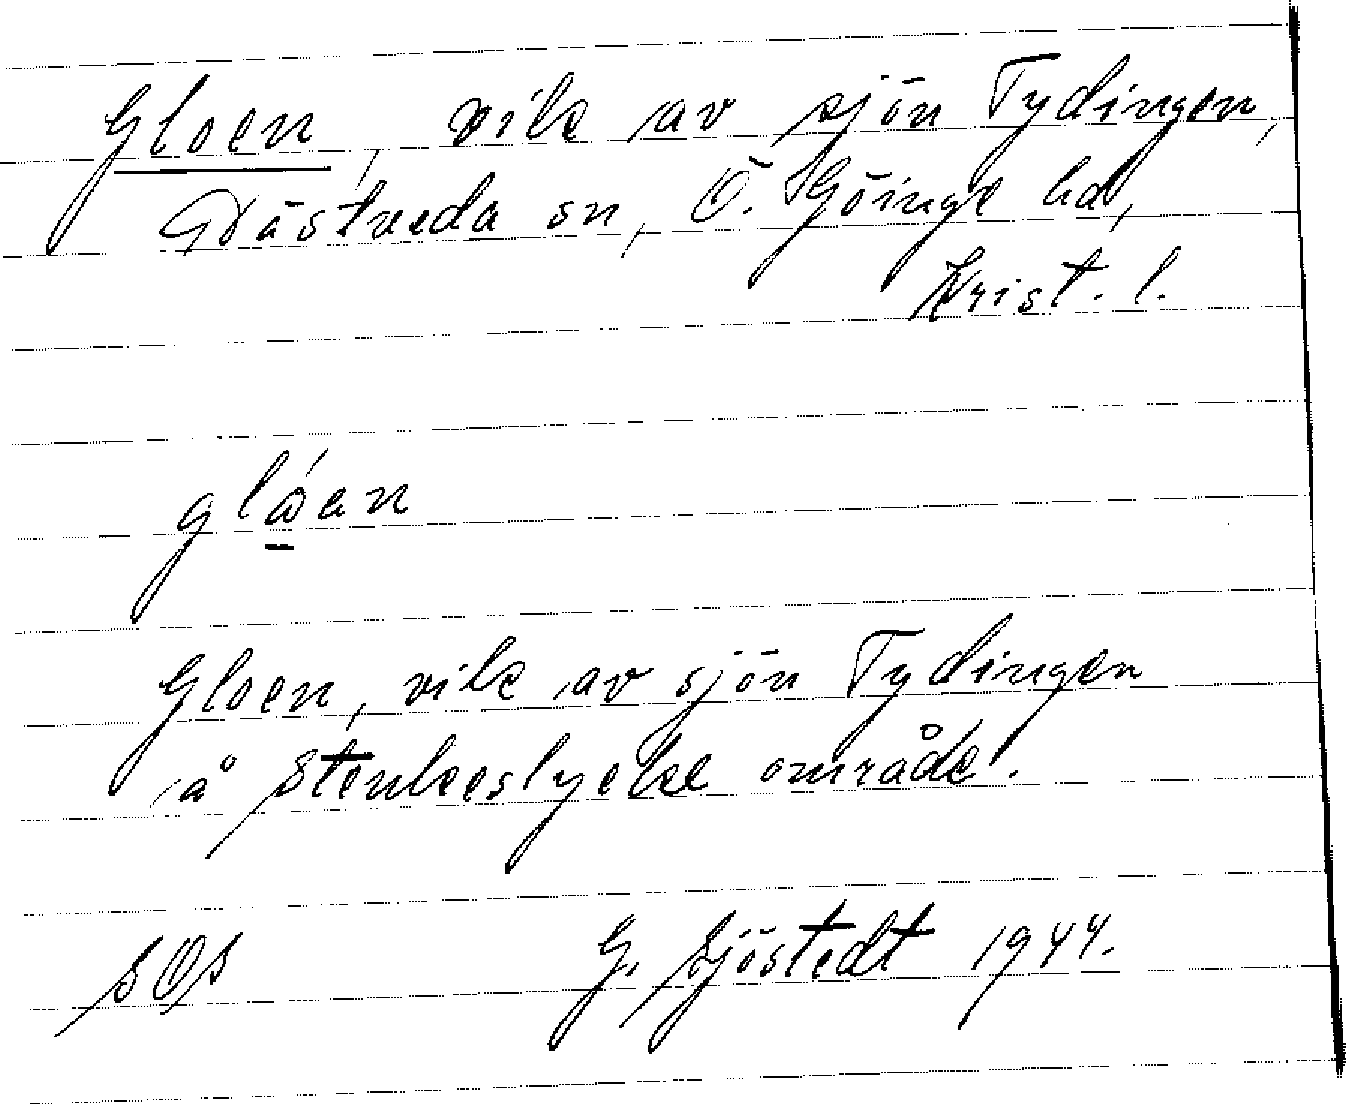 Gloen, vik av sjön Tydingen,
Västveda sn, Ö. Göinge hd,
Krist. l.
gló̱en
Gloen, vik av sjön Tydingen
å område.
SOS G. Sjöstedt 1944.